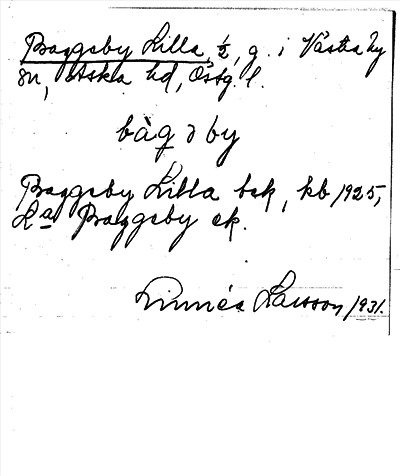 Baggeby Lilla, 1/2, g. i Västra Ny
sn, Aska hd, Östg. l.
bàg ə by
Baggeby Lilla bek, kb 1925,
La Baggeby ek.
Linnéa Larsson 1931.